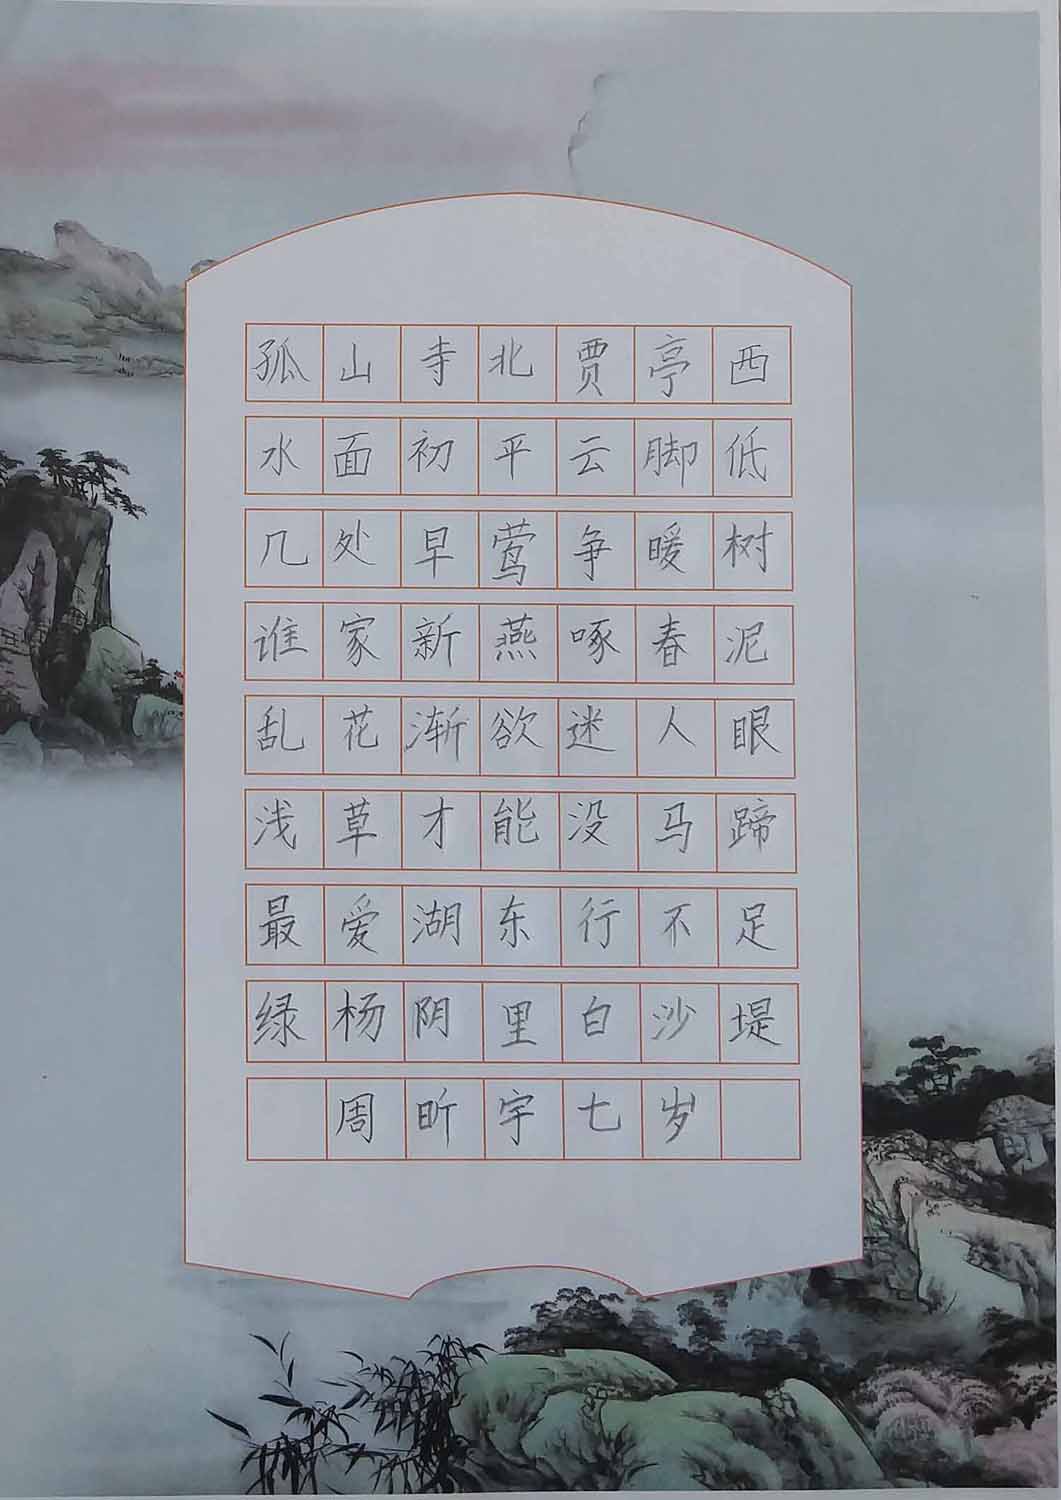 孤山寺北贾亭西
水面初平云脚低
几处早莺争暖树
谁家新燕啄春泥
乱花渐欲迷人眼
浅草才能没马蹄
最爱湖东行不足
绿杨阴里白沙堤
周昕宇七岁